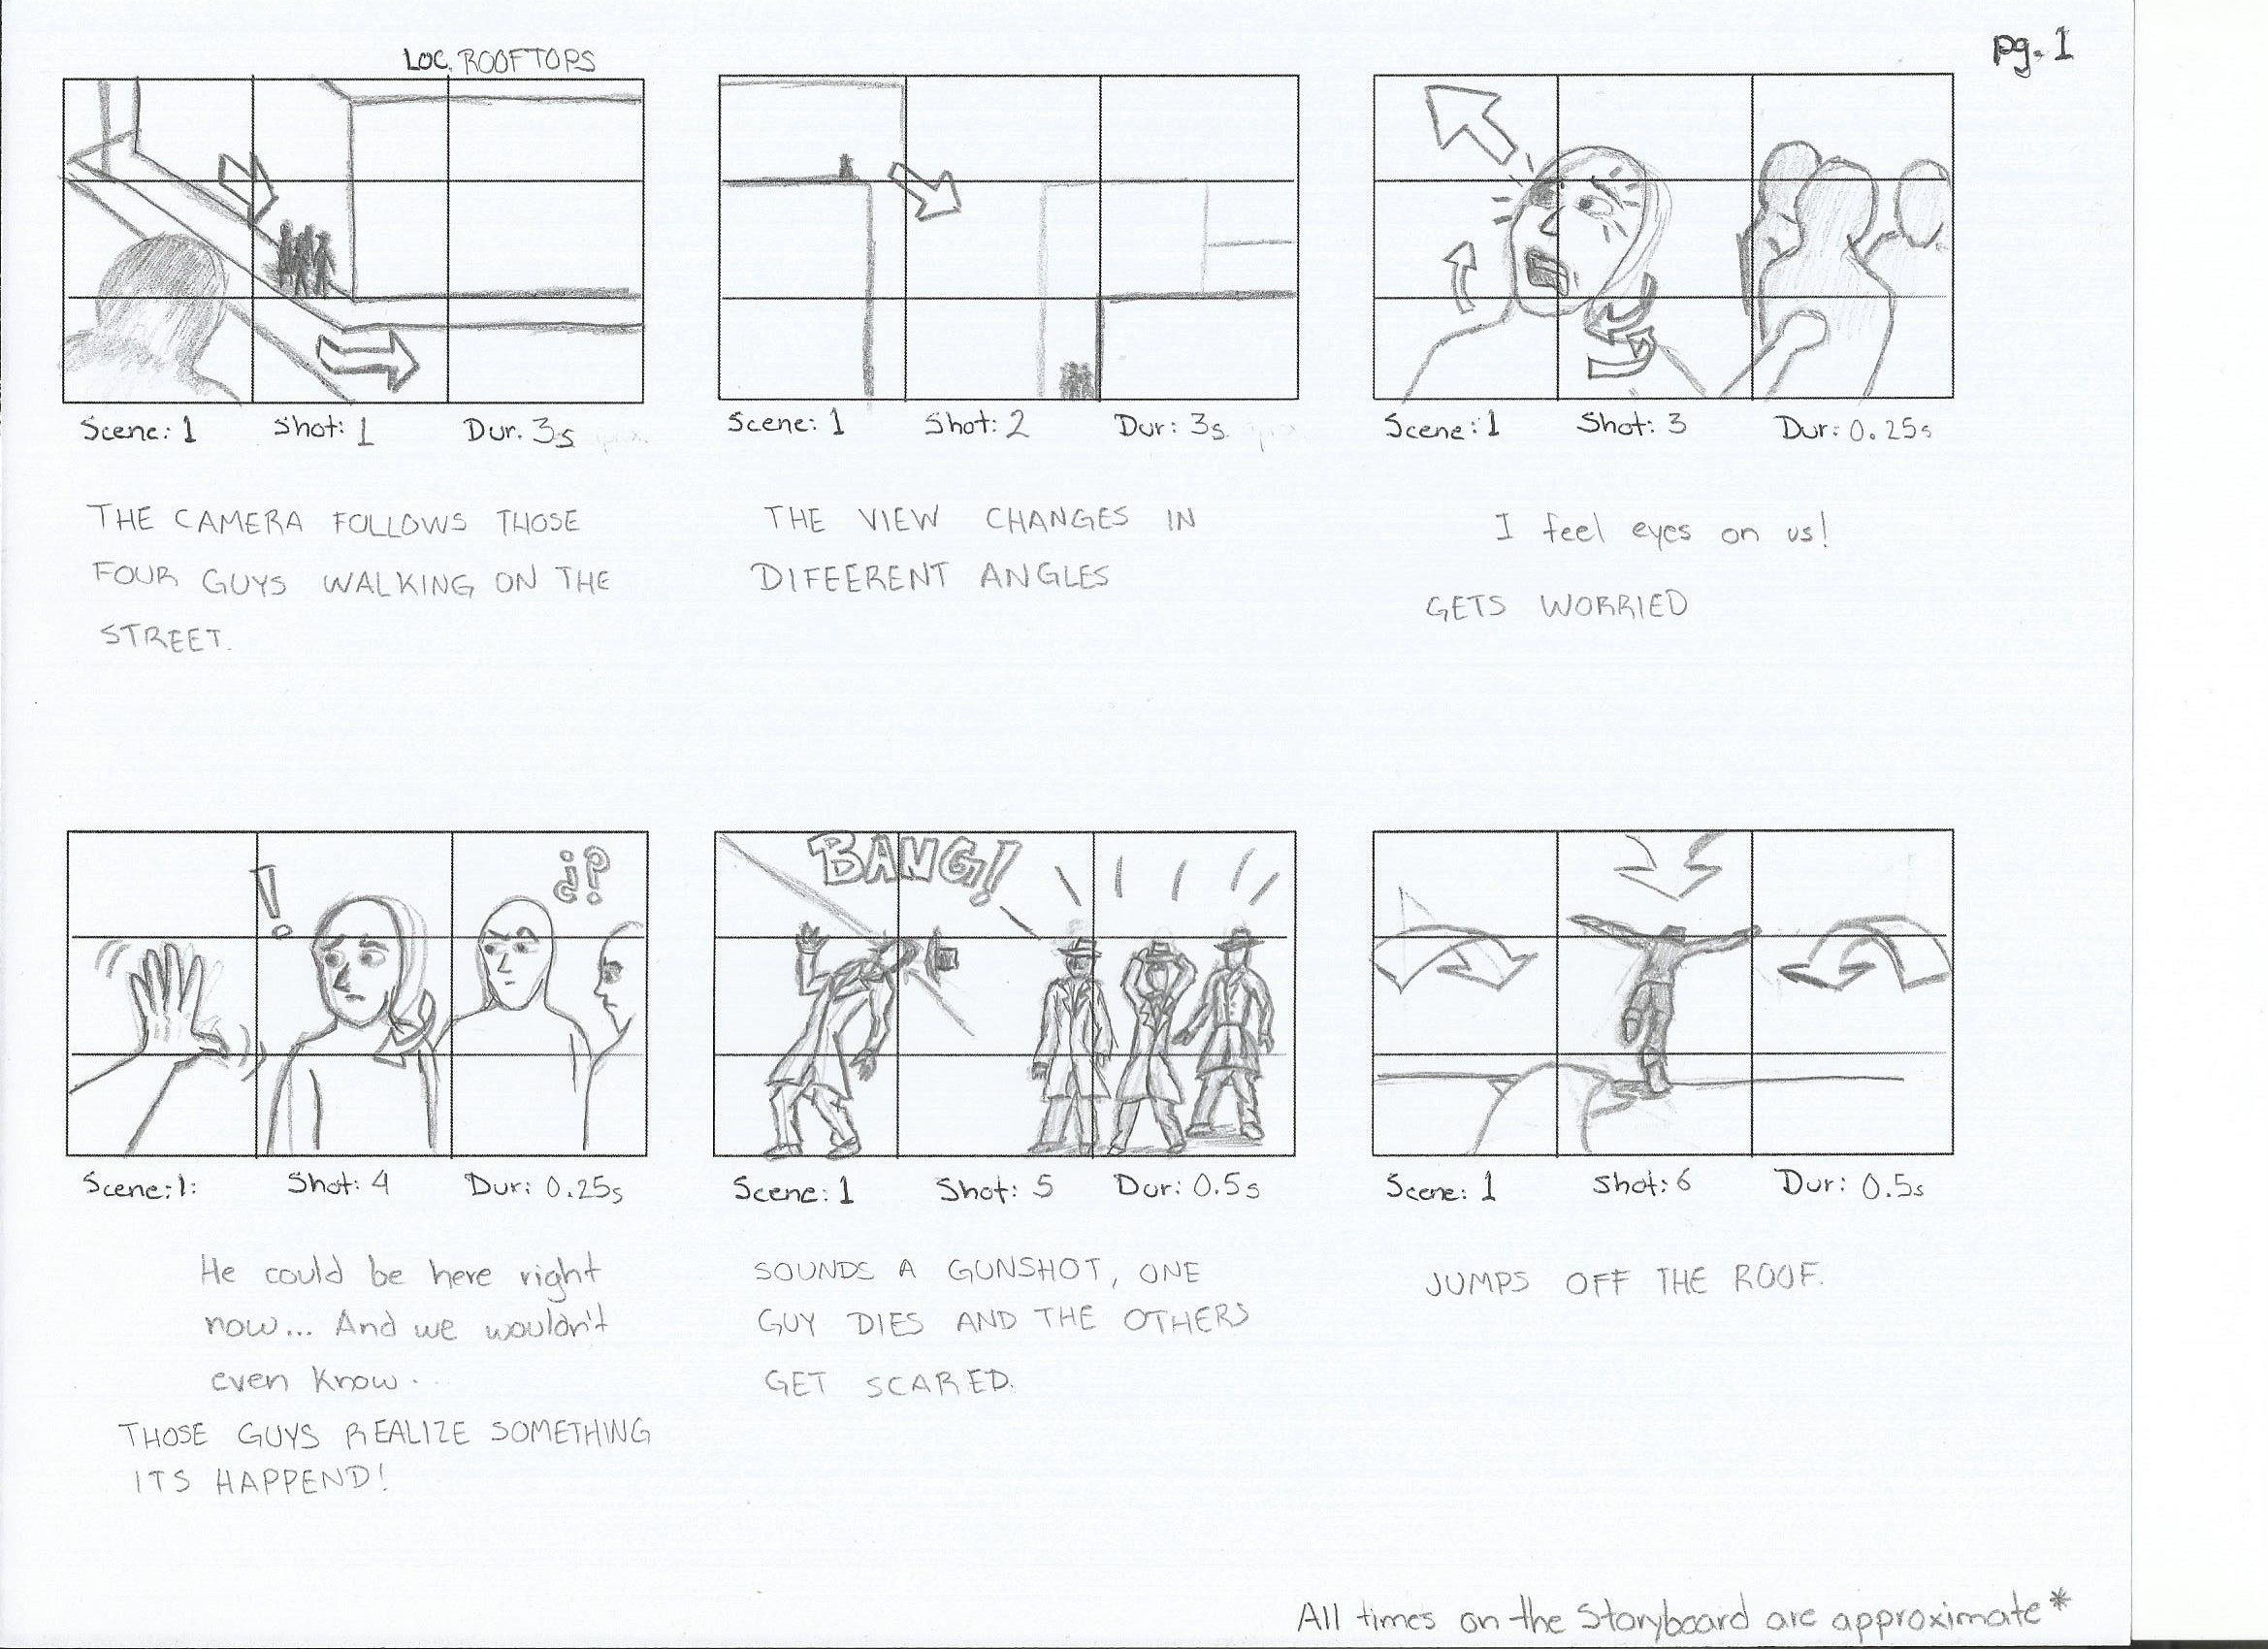 pg. 1
LOC. ROOFTOPS
Scene: 1 Shot: 1 Dur. 3s
THE CAMERA FOLLOWS THOSE
FOUR GUYS WALKING ON THE
STREET.
Scene: 1 Shot: 2 Dur: 3s
THE VIEW CHANGES IN
DIFEERENT ANGLES
Scene: 1 Shot: 3 Dur: 0.25s
I feel eyes on us!
GETS WORRIED
!
¿?
Scene: 1: Shot: 4 Dur: 0.25s
He could be here right
now... And we wouldn't
even know.
THOSE GUYS REALIZE SOMETHING
ITS HAPPEND!
BANG!
Scene: 1 Shot: 5 Dur: 0.5s
SOUNDS A GUNSHOT, ONE
GUY DIES AND THE OTHERS
GET SCARED.
Scene: 1 Shot: 6 Dur: 0.5s
JUMPS OFF THE ROOF.
All times on the Storyboard are approximate*